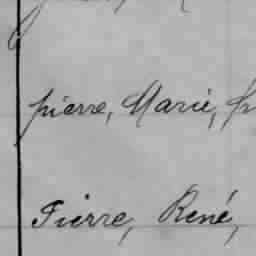 pierre, Marie,
Pierre, René,